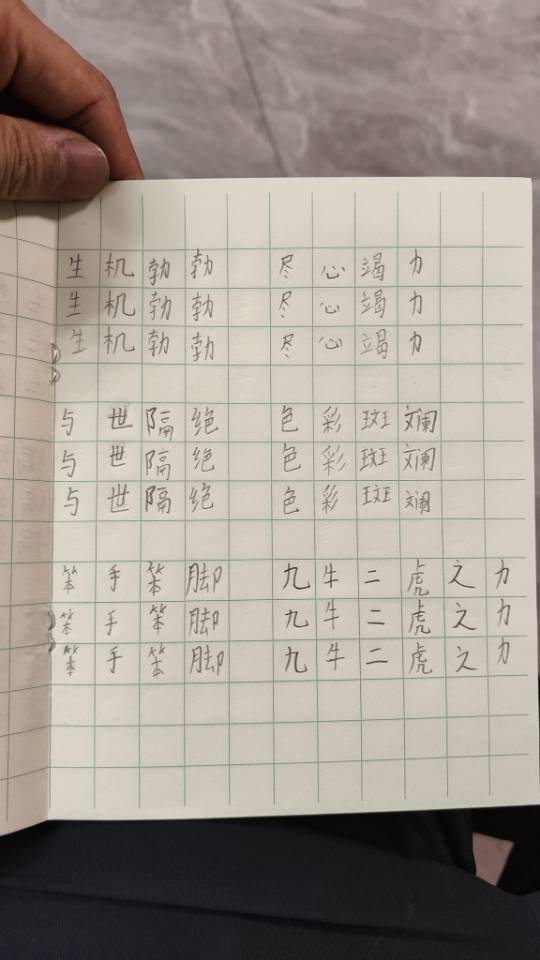 生机勃勃 尽心竭力
生机勃勃 尽心竭力
生机勃勃 尽心竭力
与世隔绝 色彩斑斓
与世隔绝 色彩斑斓
与世隔绝 色彩斑斓
笨手笨脚 九牛二虎之力
笨手笨脚 九牛二虎之力
笨手笨脚 九牛二虎之力